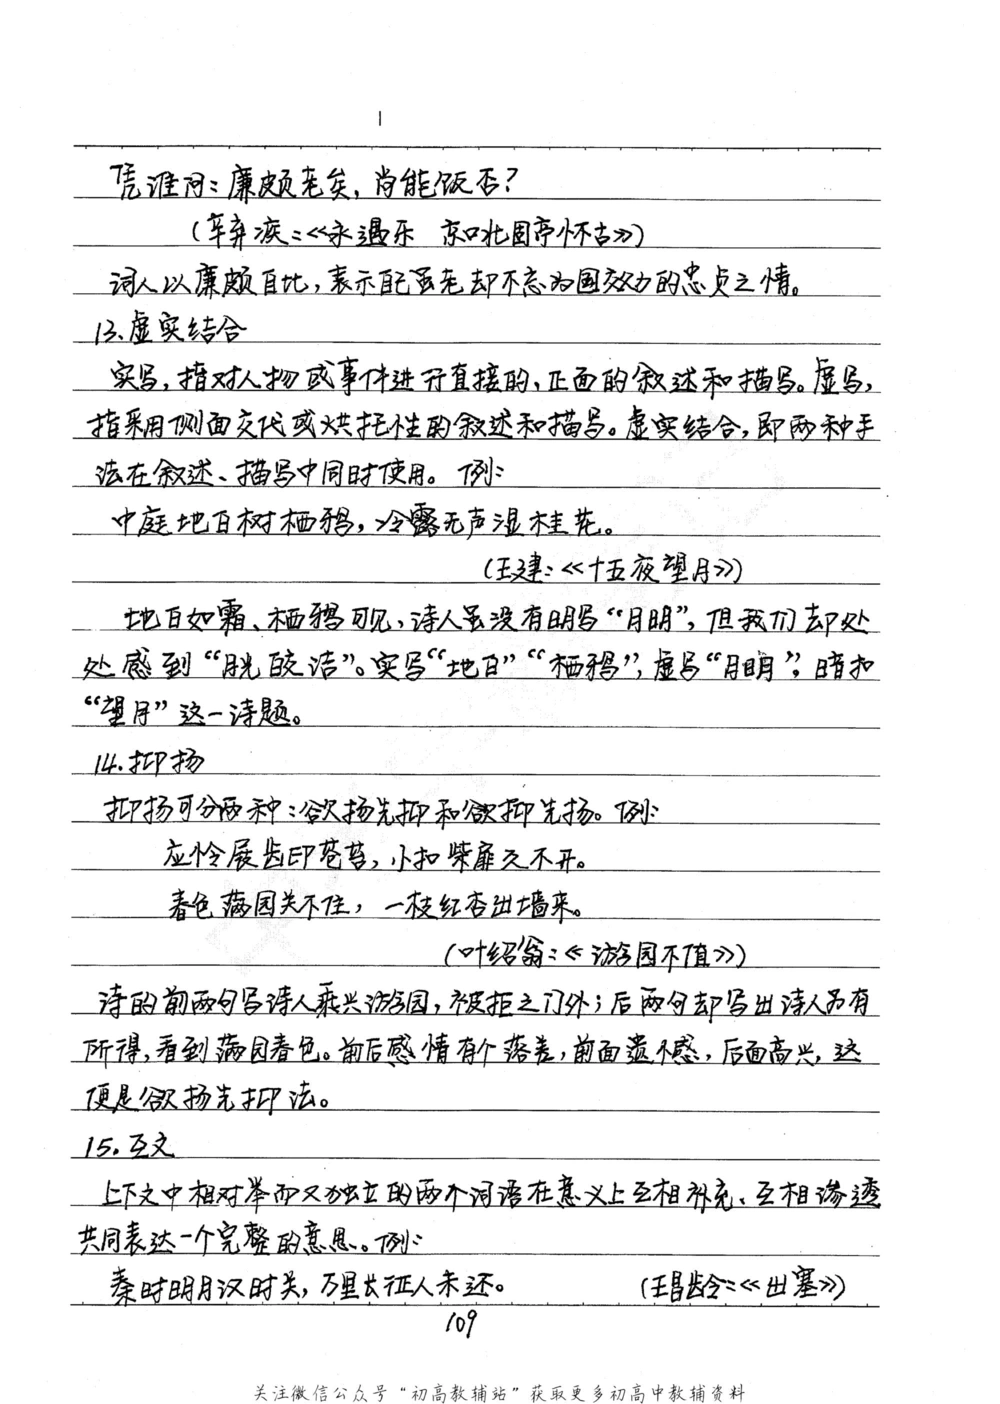 凭谁问：廉颇老矣，尚能饭否？
（辛弃疾：《永遇乐 京口北固亭怀古》）
词人以廉颇自比，表示自己虽老却不忘为国效力的忠贞之情。
13.虚实结合
实写，指对人物或事件进行直接的、正面的叙述和描写。虚写，
指采用侧面交代或烘托性的叙述和描写。虚实结合，即两种手
法在叙述、描写中同时使用。例：
中庭地白树栖鸦，冷露无声湿桂花。
（王建：《十五夜望月》）
地白如霜、栖鸦可见，诗人虽没有明写“月明”，但我们却处
处感到“月光皎洁”。实写“地白”“栖鸦”，虚写“月明”，暗扣
“望月”这一诗题。
14.抑扬
抑扬可分两种：欲扬先抑和欲抑先扬。例：
应怜屐齿印苍苔，小扣柴扉久不开。
春色满园关不住，一枝红杏出墙来。
（叶绍翁：《游园不值》）
诗的前两句写诗人乘兴游园，被拒之门外；后两句却写出诗人另有
所得，看到满园春色。前后感情有个落差，前面遗憾，后面高兴，这
便是欲扬先抑法。
15.互文
上下文中相对举而又独立的两个词语在意义上互相补充、互相渗透
共同表达一个完整的意思。例：
秦时明月汉时关，万里长征人未还。 （王昌龄：《出塞》）
109
关注微信公众号“初高教辅站”获取更多初高中教辅资料